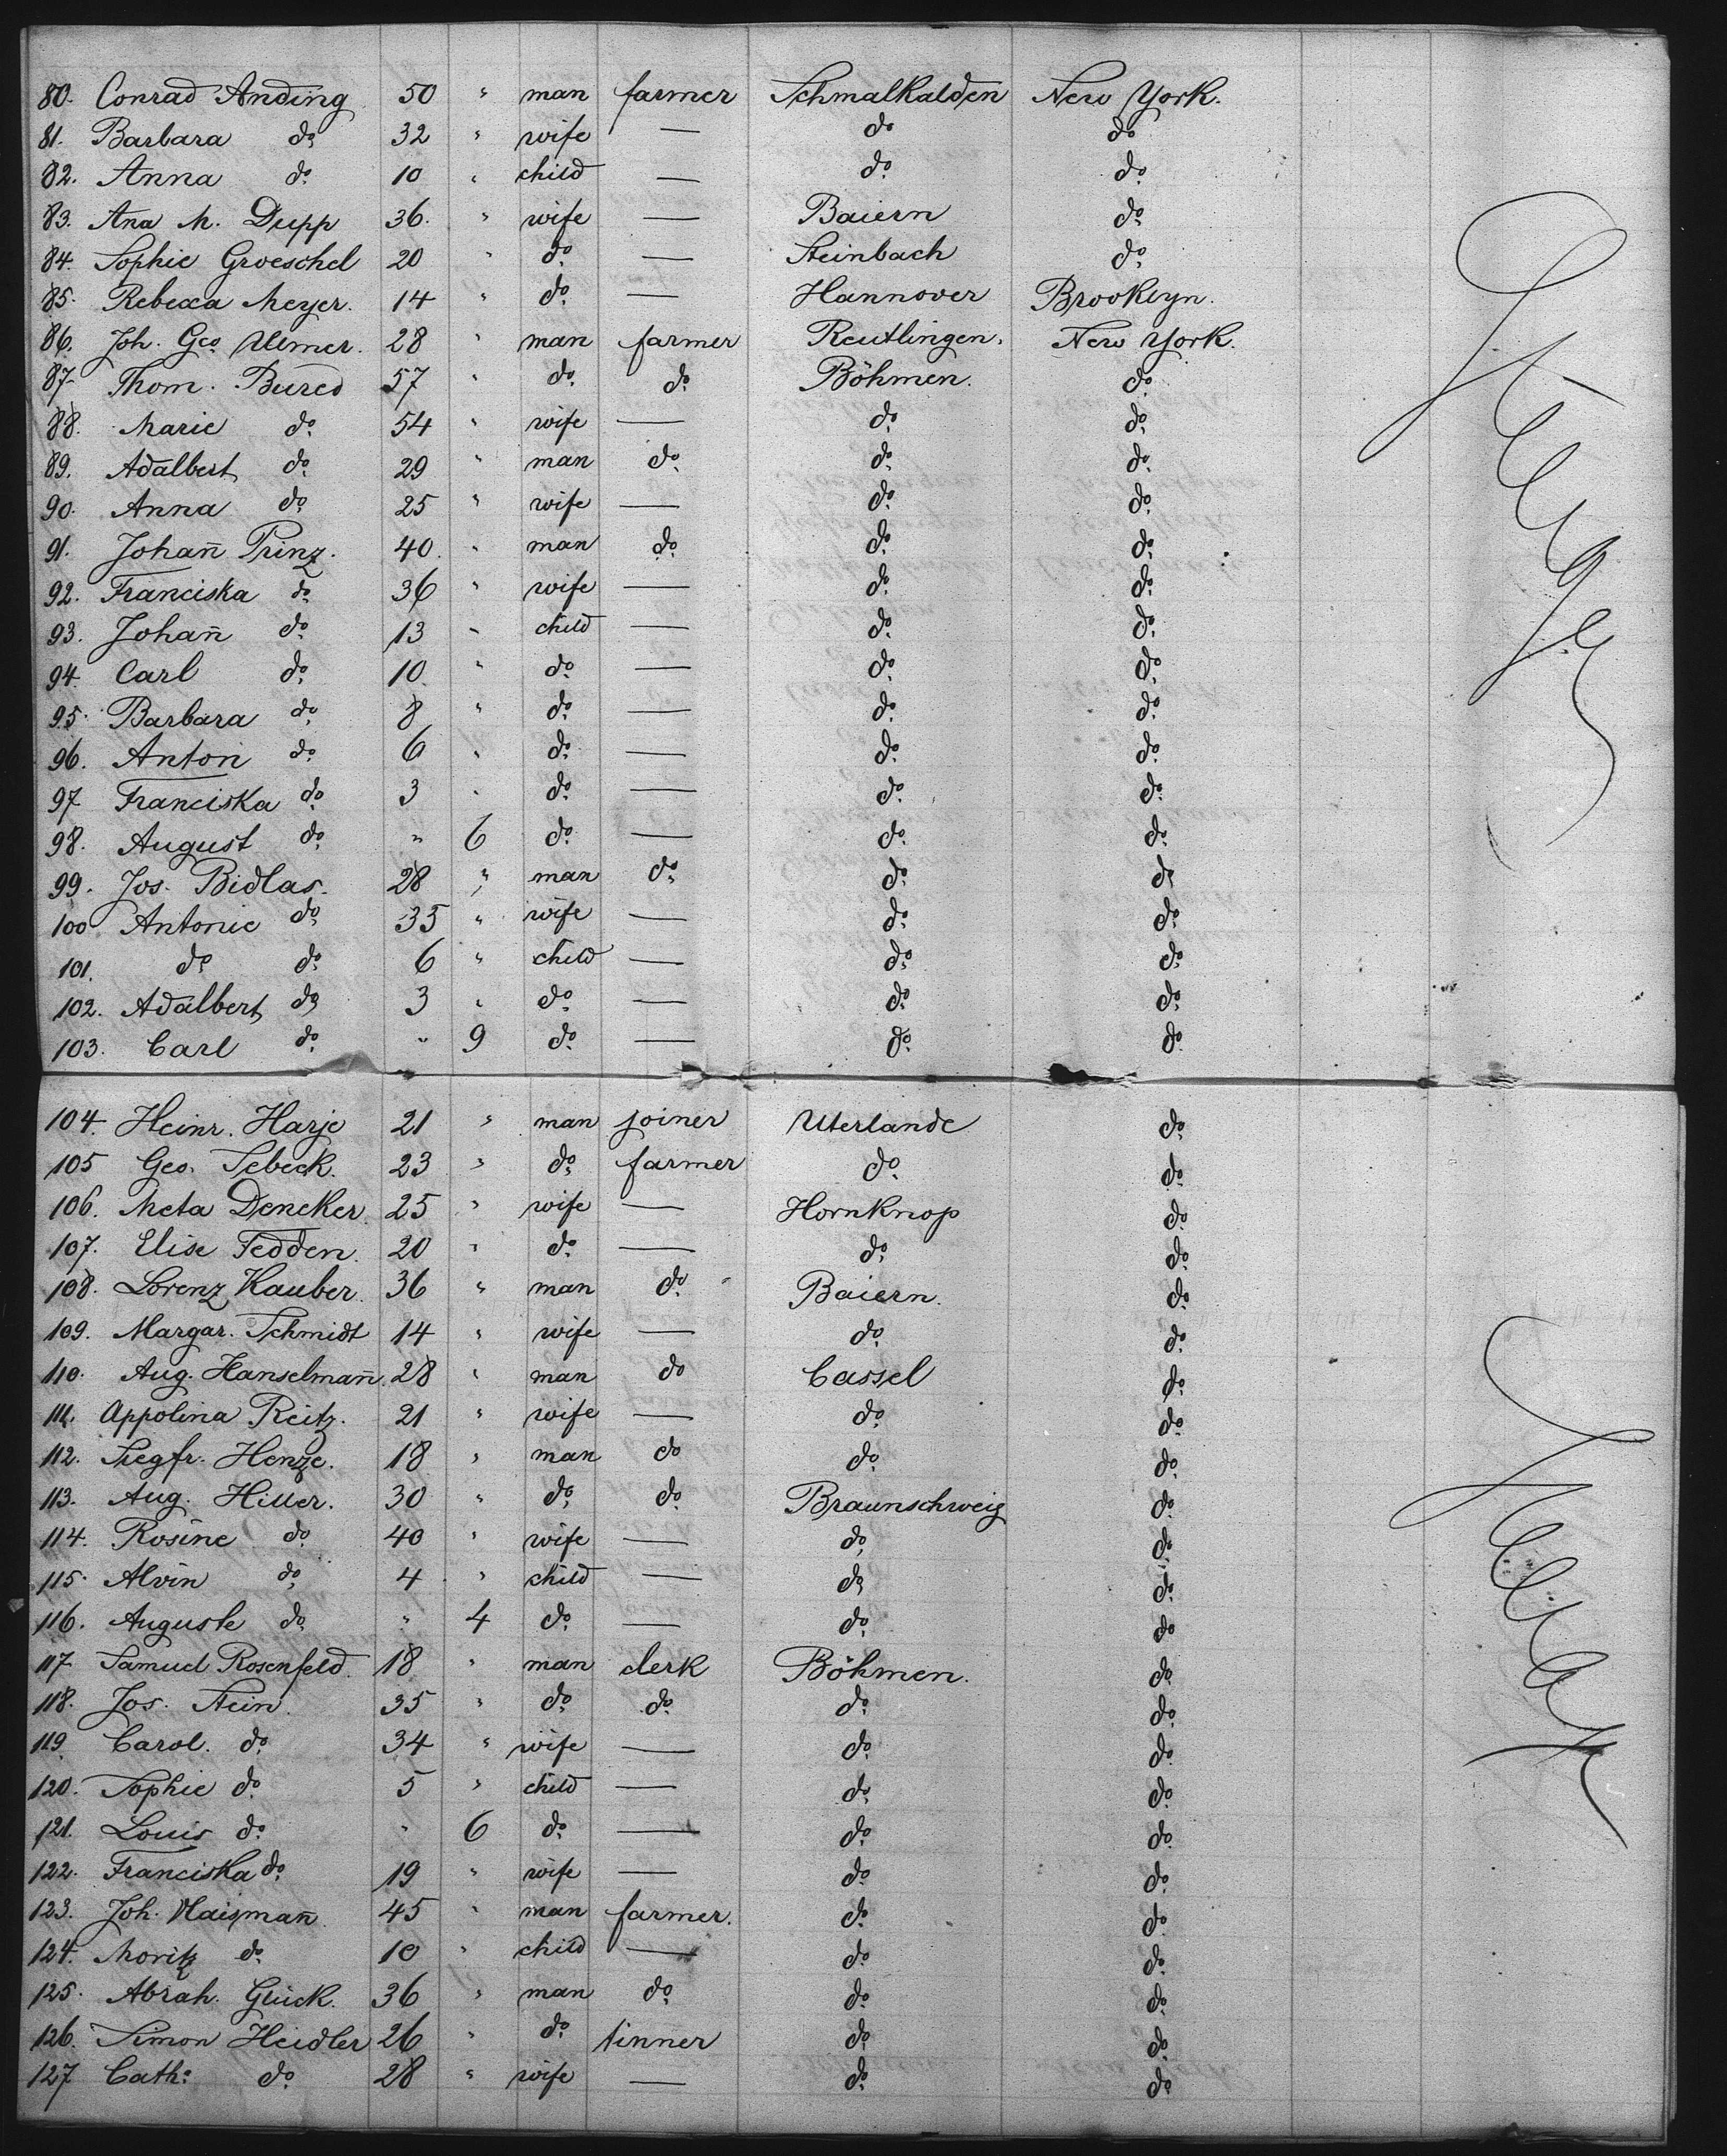 80. Conrad Anding 50 " man farmer Schmalkalden New York.
81. Barbara do 32 " wife — do do
82. Anna do 10 " child — do do
83. Ana M. Dupp 36. " wife — Baiern do
84. Sophie Groeschel 20 " do — Steinbach do
85. Rebecca Meyer. 14 " do — Hannover Brooklyn.
86. Joh. Geo Ullmer. 28 " man farmer Reutlingen. New York.
87. Thom. Bures 57 " do do Böhmen. do
88. Marie do 54 " wife — do do
89. Adalbert do 29 " man do do do
90. Anna do 25 " wife — do do
91. Johan̄ Prinz. 40. " man do do do
92. Franciska do 36 " wife — do do
93. Johan̄ do 13 " child — do do
94. Carl do 10 " do — do do
95. Barbara do 8 " do — do do
96. Anton do 6 " do — do do
97 Franciska do 3 " do — do do
98. August do " 6 do — do do
99. Jos. Bidlas. 28 " man do do do
100 Antonie do 35 " wife — do do
101. do do 6 " child — do do
102. Adalbert do 3 " do — do do
103. Carl do " 9 do — do do
104. Heinr. Harje 21 " man joiner Uterlande do
105 Geo. Sebeck. 23 " do farmer do do
106. Meta Deneker. 25 " wife — Hornknop do
107. Elise Fedden. 20 " do — do do
108. Lorenz Kauber. 36 " man do Baiern. do
109. Margar. Schmidt 14 " wife — do do
110. Aug. Hanselman̄. 28 " man do Cassel do
111. Appolina Reitz. 21 " wife — do do
112. Siegfr. Henze. 18 " man do do do
113. Aug. Hiller. 30 " do do Braunschweig do
114. Rosine do 40 " wife — do do
115. Alvin do 4 " child — do do
116. Auguste do " 4 do — do do
117 Samuel Rosenfeld. 18 " man clerk Böhmen. do
118. Jos. Stein. 35 " do do do do
119. Carol. do 34 " wife — do do
120. Sophie do 5 " child — do do
121. Louis do " 6 do — do do
122. Franciska do 19 " wife — do do
123. Joh. 45 " man farmer. do do
124. Moritz do 10 " child — do do
125. Abrah. Glück. 36 " man do do do
126. Simon Heidler 26 " do tinner do do
127 Cath: do 28 " wife — do do